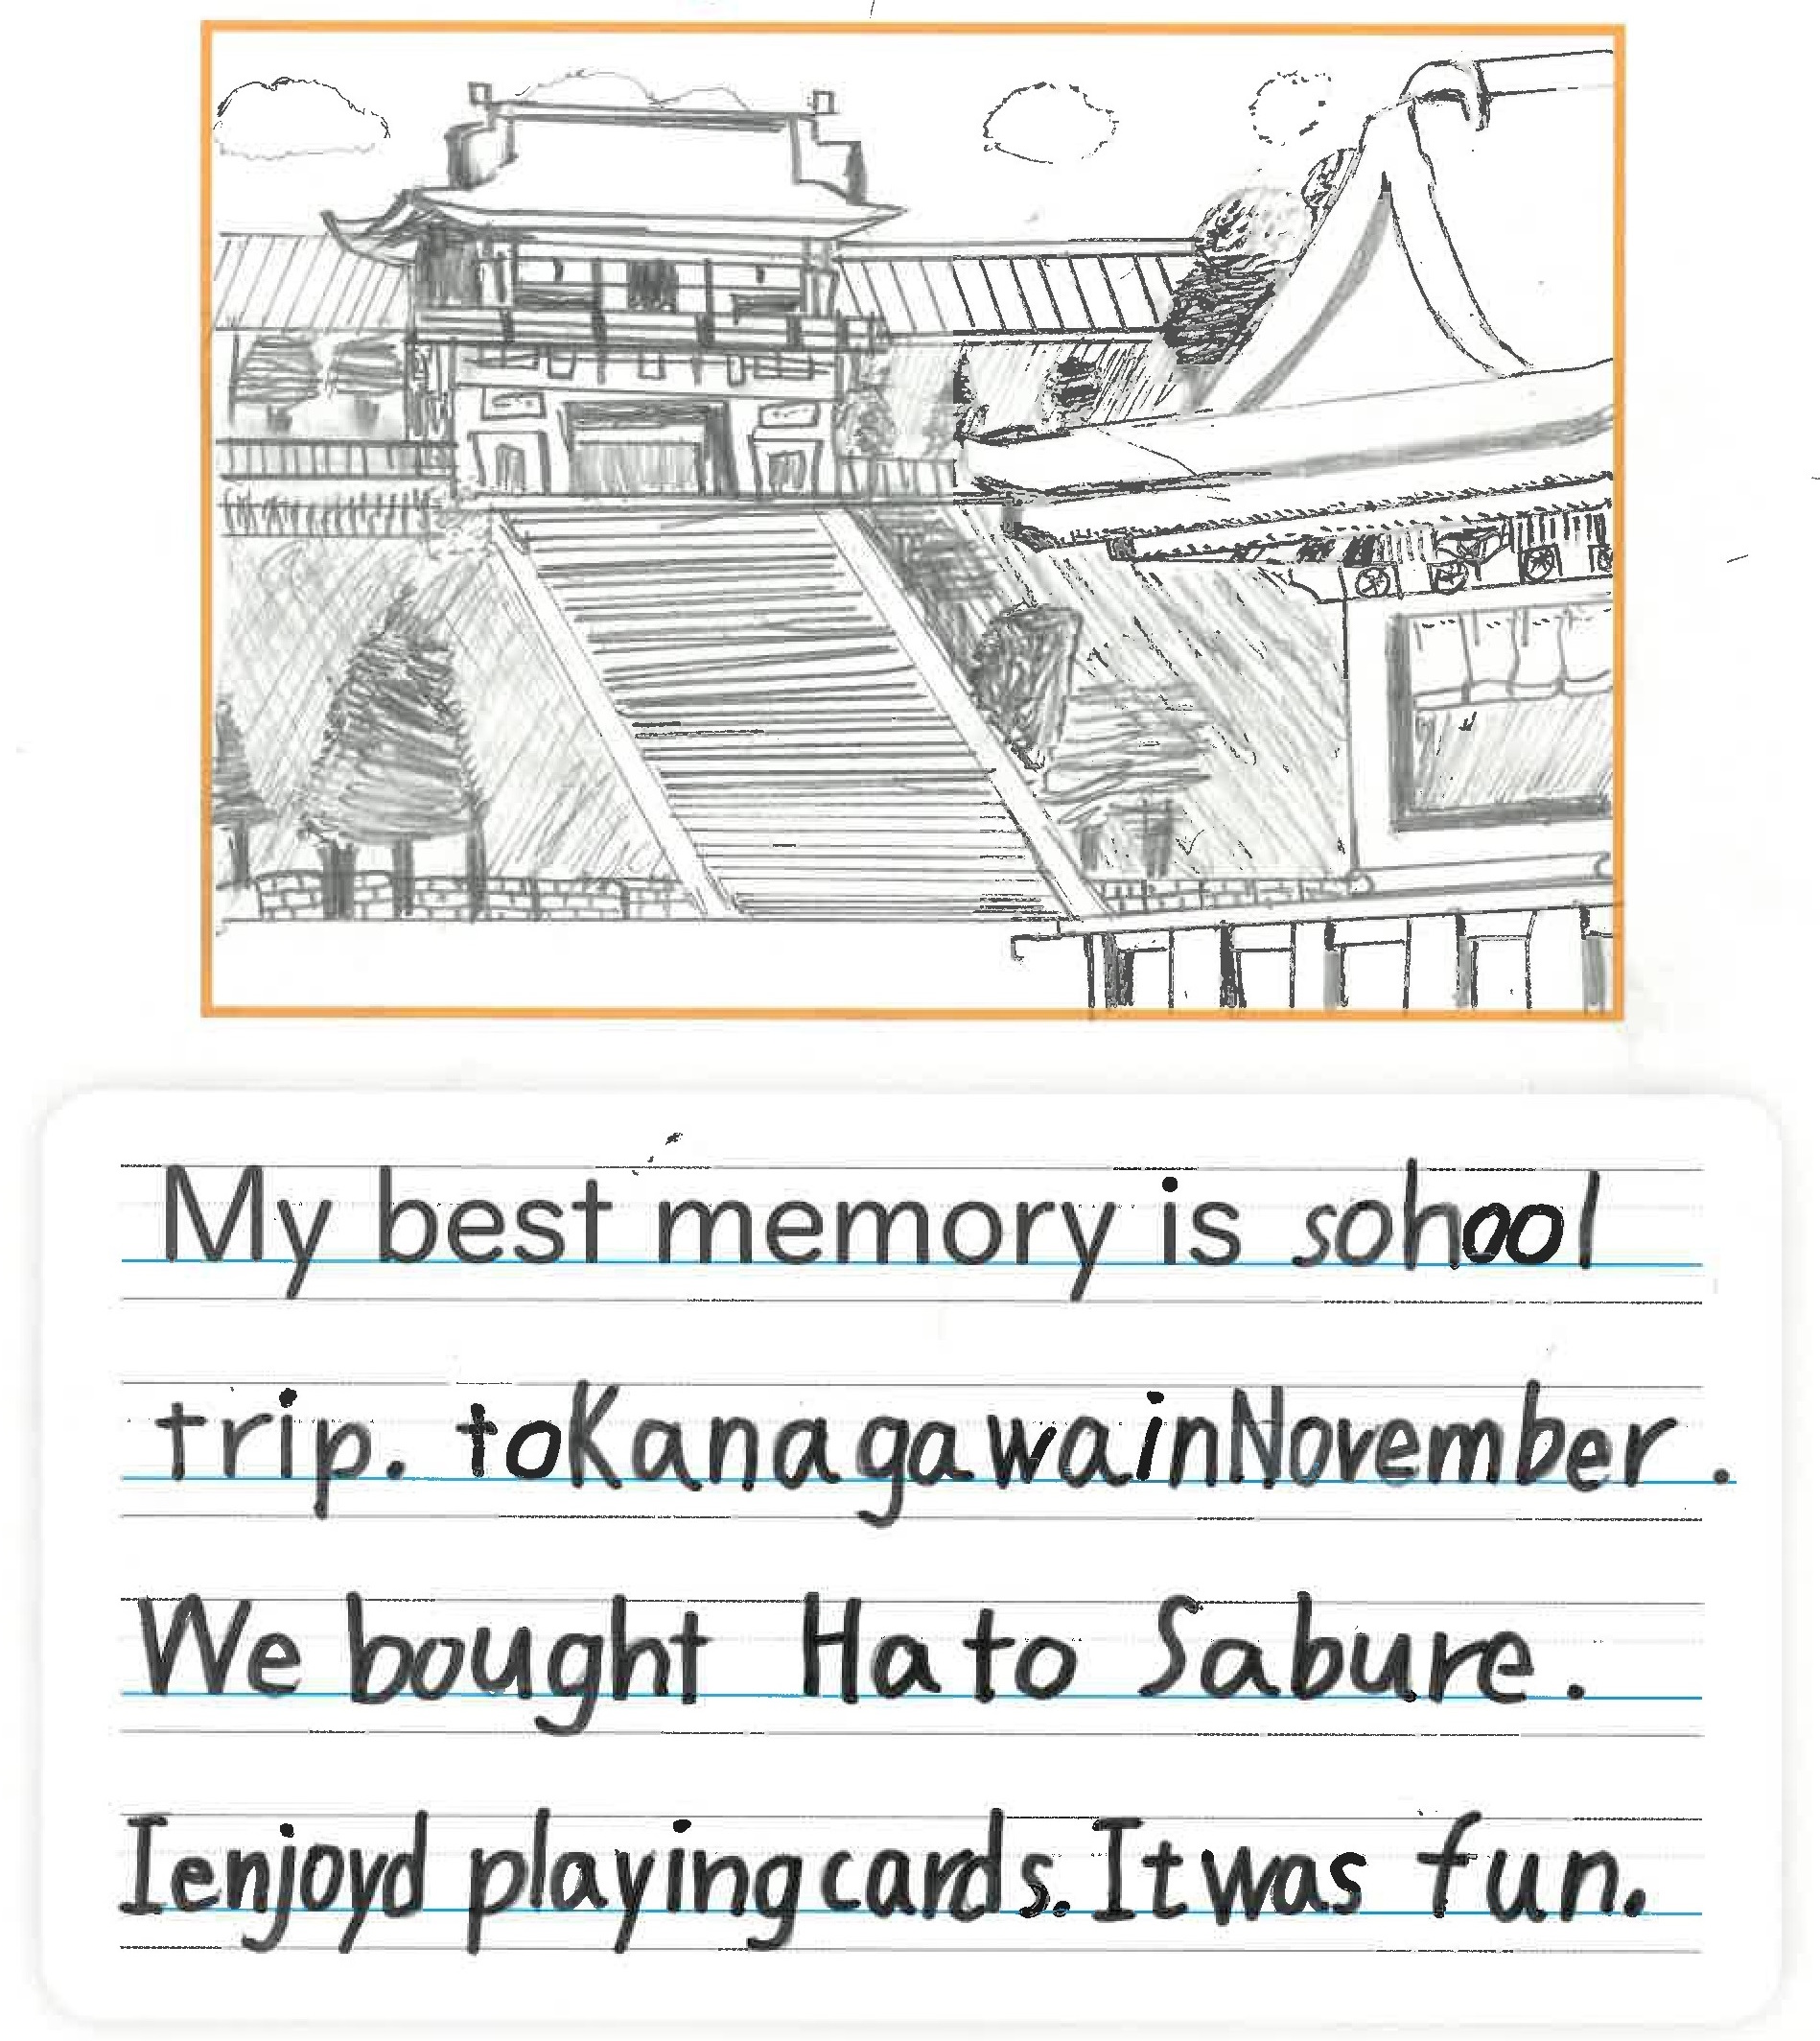 My best memory is sohool
trip. toKanagawainNovember.
We bought Hato Sabure.
Ienjoyd playingcards.Itwas fun.